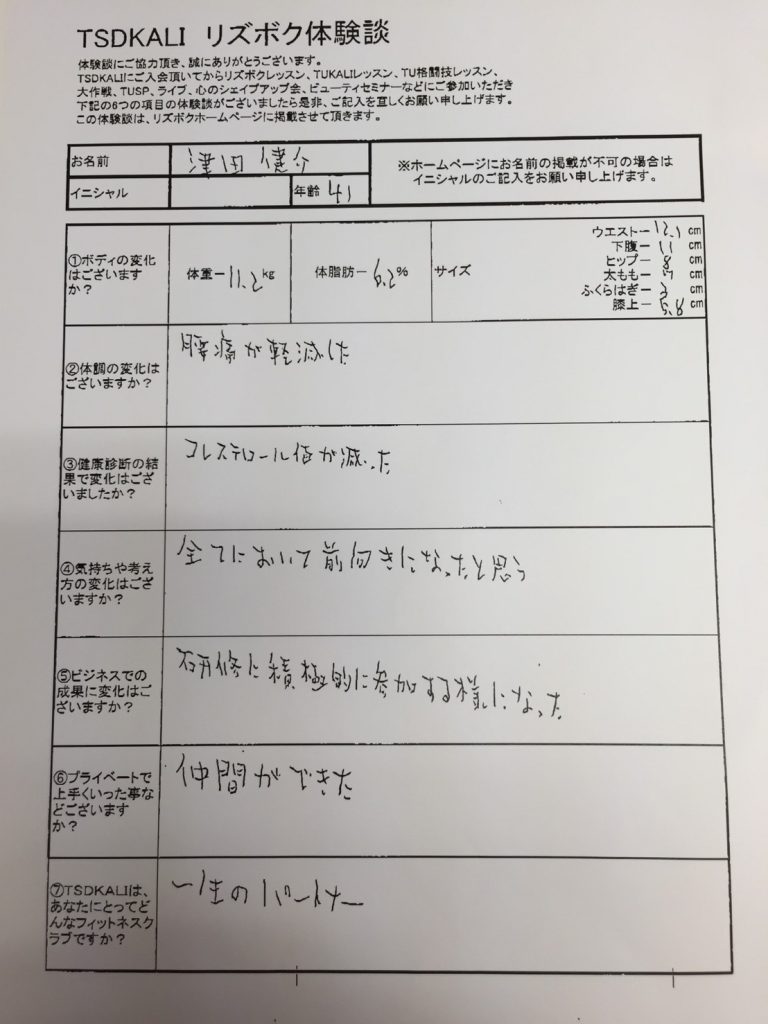 TSDKALI リズボク体験談
体験談にご協力頂き、誠にありがとうございます。
TSDKALIにご入会頂いてからリズボクレッスン、TUKALIレッスン、TU格闘技レッスン、
大作戦、TUSP、ライブ、心のシェイプアップ会、ビューティセミナーなどにご参加いただき
下記の6つの項目の体験談がございましたら是非、ご記入を宜しくお願い申し上げます。
この体験談は、リズボクホームページに掲載させて頂きます。
お名前 津田健介
※ホームページにお名前の掲載が不可の場合は
イニシャルのご記入をお願い申し上げます。
イニシャル 年齢 41
①ボディの変化
はございます
か?
体重ー11.2kg
体脂肪ー6.2%
サイズ
ウエストー12.1 cm
下腹ー11 cm
ヒップー8 cm
太ももー7 cm
ふくらはぎー3 cm
膝上ー5.8 cm
②体調の変化は
ございますか?
腰痛が軽減した
③健康診断の結
果で変化はござ
いましたか?
コレステロール値が減った
④気持ちや考え
方の変化はござ
いますか?
全てにおいて前向きになったと思う
⑤ビジネスでの
成果に変化はご
ざいますか?
研修に積極的に参加する様になった
⑥プライベートで
上手くいった事な
どございます
か?
仲間ができた
⑦TSDKALIは、
あなたにとってど
んなフィットネスク
ラブですか?
一生のパートナー